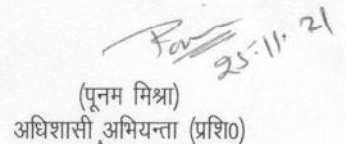 25.11.21
(पूनम मिश्रा)
अधिशासी अभियन्ता (प्रशि0)